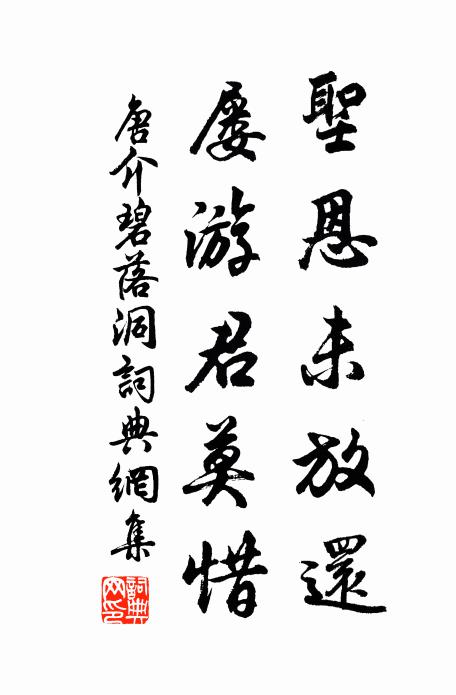 聖恩未放還
屡游君莫惜
唐介碧落洞詞典網集
詞典網印